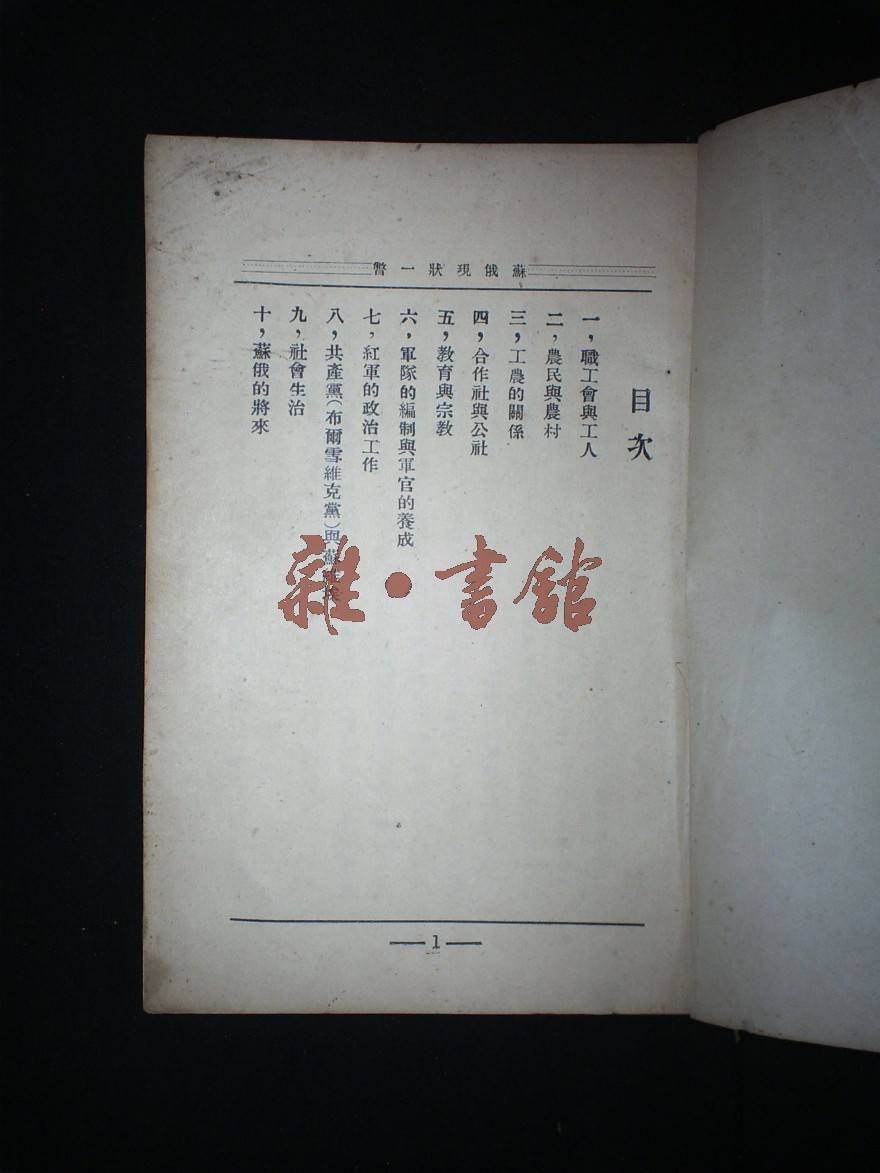 蘇俄現狀一瞥
目次
一，職工會與工人
二，農民與農村
三，工農的關係
四，合作社與公社
五，教育與宗教
六，軍隊的編制與軍官的養成
七，紅軍的政治工作
八，共產黨（布爾雪維克黨）與蘇維埃
九，社會生治
十，蘇俄的將來
雜·書館
1